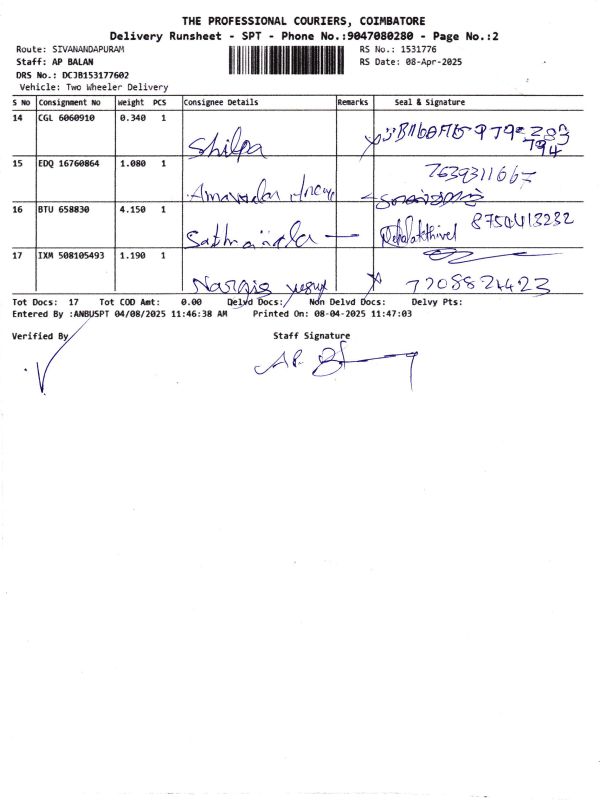 THE PROFESSIONAL COURIERS, COIMBATORE
Delivery Runsheet - SPT - Phone No.:9047080280 - Page No.:2
Route: SIVANANDAPURAM RS No.: 1531776
Staff: AP BALAN RS Date: 08-Apr-2025
DRS No.: DCJB153177602
Vehicle: Two Wheeler Delivery
S No Consignment No Weight PCS Consignee Details Remarks Seal & Signature
14 CGL 6060910 0.340 1
Shilpa
15 EDQ 16760864 1.080 1
7639311667
16 BTU 658830 4.150 1
8750413232
17 IXM 508105493 1.190 1
Nargis 7208824423
Tot Docs: 17 Tot COD Amt: 0.00 Delvd Docs: Non Delvd Docs: Delvy Pts:
Entered By :ANBUSPT 04/08/2025 11:46:38 AM Printed On: 08-04-2025 11:47:03
Verified By Staff Signature